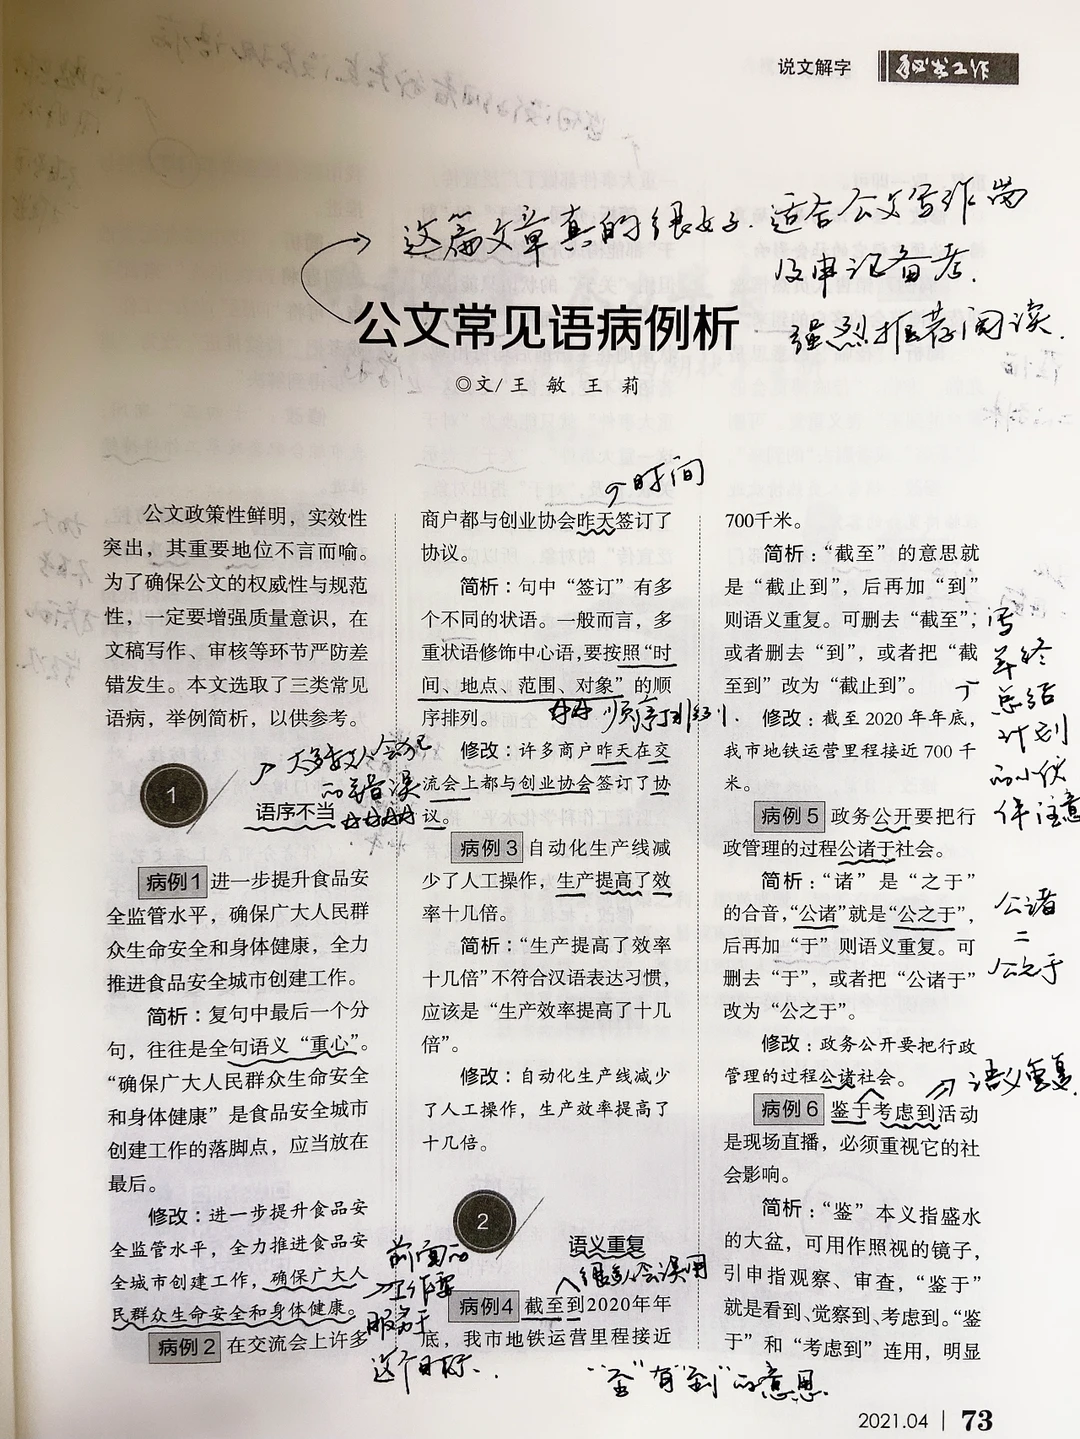 说文解字 秘书工作
这篇文章真的很好.适合公文写作岗
及申论备考.
强烈推荐阅读.
公文常见语病例析
◎文/王 敏 王 莉
公文政策性鲜明，实效性
突出，其重要地位不言而喻。
为了确保公文的权威性与规范
性，一定要增强质量意识，在
文稿写作、审核等环节严防差
错发生。本文选取了三类常见
语病，举例简析，以供参考。
1
大多数人会犯
的错误
语序不当
病例1 进一步提升食品安
全监管水平，确保广大人民群
众生命安全和身体健康，全力
推进食品安全城市创建工作。
简析：复句中最后一个分
句，往往是全句语义“重心”。
“确保广大人民群众生命安全
和身体健康”是食品安全城市
创建工作的落脚点，应当放在
最后。
修改：进一步提升食品安
全监管水平，全力推进食品安
全城市创建工作，确保广大人
民群众生命安全和身体健康。
前面的
工作要
服务于
这个目标.
病例2 在交流会上许多
时间
商户都与创业协会昨天签订了
协议。
简析：句中“签订”有多
个不同的状语。一般而言，多
重状语修饰中心语,要按照“时
间、地点、范围、对象”的顺
序排列。
顺序排列.
修改：许多商户昨天在交
流会上都与创业协会签订了协
议。
病例3 自动化生产线减
少了人工操作，生产提高了效
率十几倍。
简析：“生产提高了效率
十几倍”不符合汉语表达习惯，
应该是“生产效率提高了十几
倍”。
修改：自动化生产线减少
了人工操作，生产效率提高了
十几倍。
2
语义重复
很多人会误用
病例4 截至到2020年年
底，我市地铁运营里程接近
“至”有“到”的意思.
700千米。
简析：“截至”的意思就
是“截止到”，后再加“到”
则语义重复。可删去“截至”；
或者删去“到”，或者把“截
至到”改为“截止到”。
写
年终
总结
计划
的小伙
伴注意
修改：截至2020年年底，
我市地铁运营里程接近700千
米。
病例5 政务公开要把行
政管理的过程公诸于社会。
简析：“诸”是“之于”
的合音，“公诸”就是“公之于”，
后再加“于”则语义重复。可
删去“于”，或者把“公诸于”
改为“公之于”。
公诸
=
公之于
修改：政务公开要把行政
管理的过程公诸社会。
语义重复.
病例6 鉴于考虑到活动
是现场直播，必须重视它的社
会影响。
简析：“鉴”本义指盛水
的大盆，可用作照视的镜子，
引申指观察、审查，“鉴于”
就是看到、觉察到、考虑到。“鉴
于”和“考虑到”连用，明显
2021.04 | 73